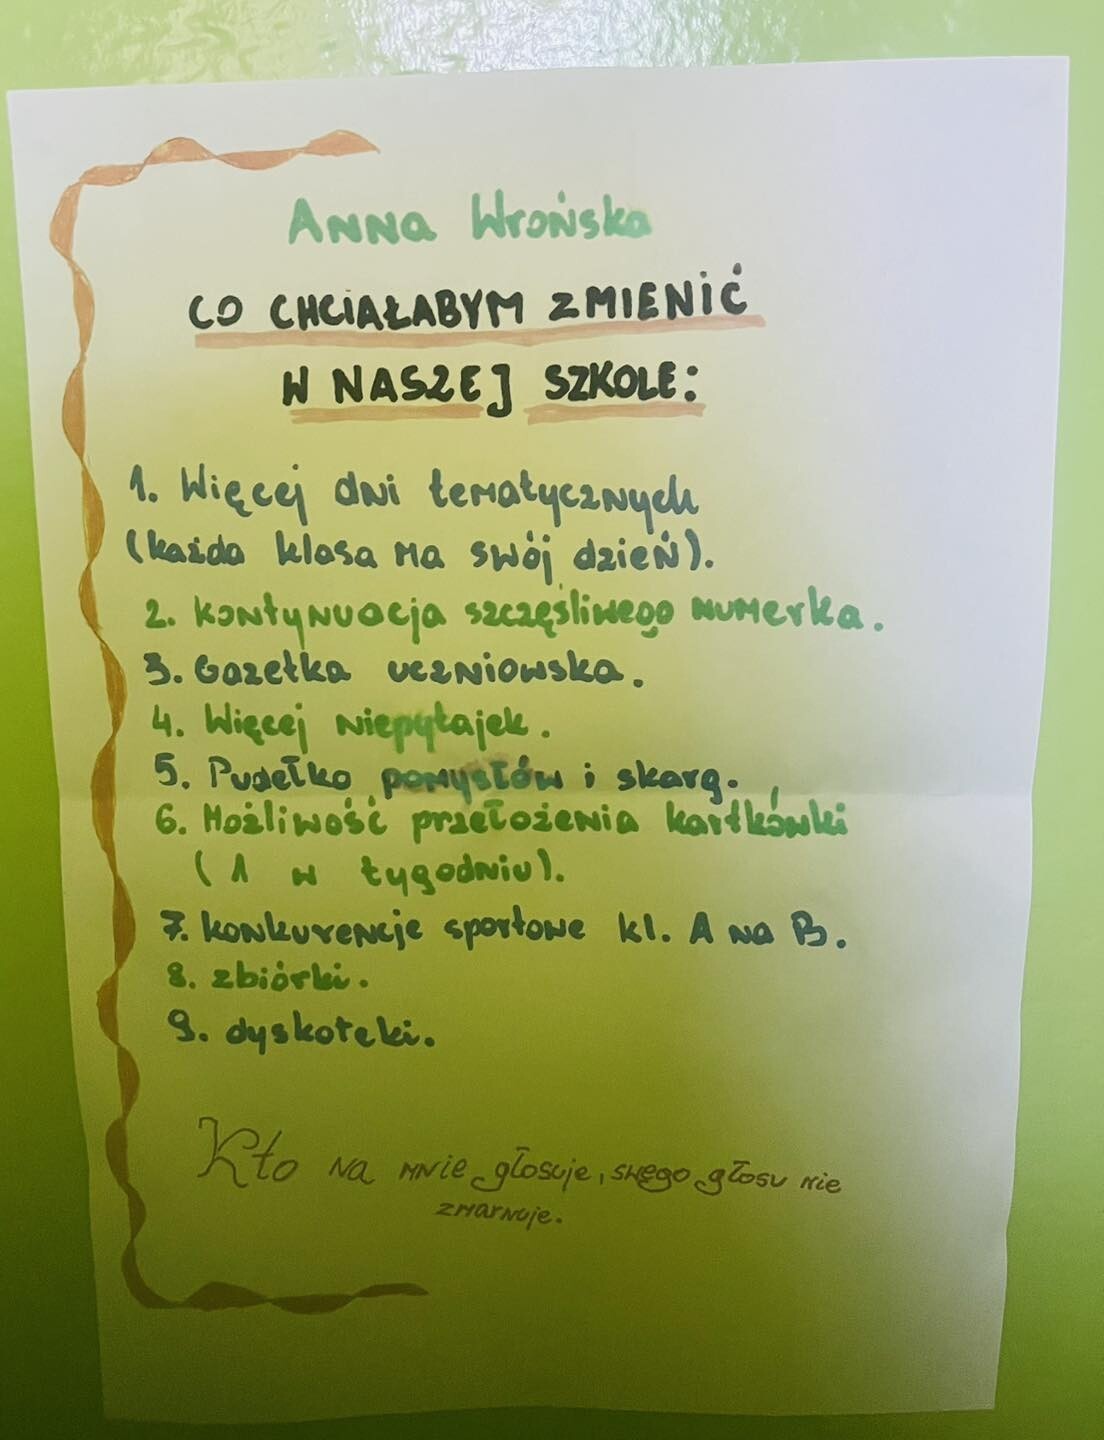 Anna Wrońska
CO CHCIAŁABYM ZMIENIĆ
W NASZEJ SZKOLE:
1. Więcej dni tematycznych
(każda klasa ma swój dzień).
2. Kontynuacja szczęśliwego numerka.
3. Gazetka uczniowska.
4. Więcej niepytajek.
5. Pudełko pomysłów i skarg.
6. Możliwość przełożenia kartkówki
(1 w tygodniu).
7. konkurencje sportowe kl. A na B.
8. zbiórki.
9. dyskoteki.
Kto na mnie głosuje, swego głosu nie
zmarnuje.